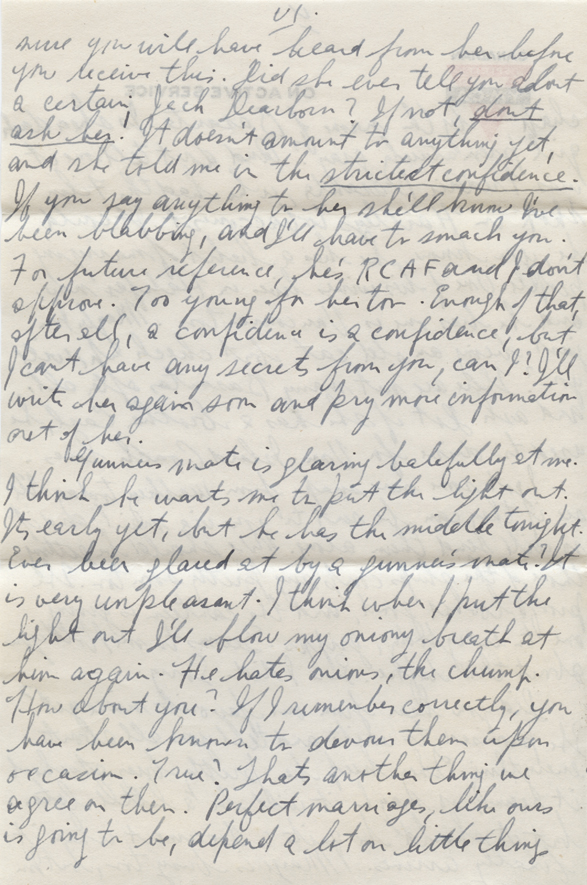 VI.
sure you will have heard from her before
you receive this. Did she ever tell you about
a certain Jack Dearborn? If not, dont
ask her! It doesn't amount to anything yet,
and she told me in the strictest confidence.
If you say anything to her she'll know I've
been blabbing, and I'll have to smack you.
For future reference, he's RCAF and I don't
approve. Too young for her too. Enough of that,
after all, a confidence is a confidence, but
I cant have any secrets from you, can I? I'll
write her again soon and pry more information
out of her.
Gunners mate is glaring balefully at me.
I think he wants me to put the light out.
Its early yet, but he has the middle tonight.
Ever been glared at by a gunners mate? It
is very unpleasant. I think when I put the
light out I'll blow my oniony breath at
him again. He hates onions, the chump.
How about you? If I remember correctly, you
have been known to devour them upon
occasion. True? Thats another thing we
agree on then. Perfect marriages, like ours
is going to be, depend a lot on little things
ON ACTIVE SERVICE